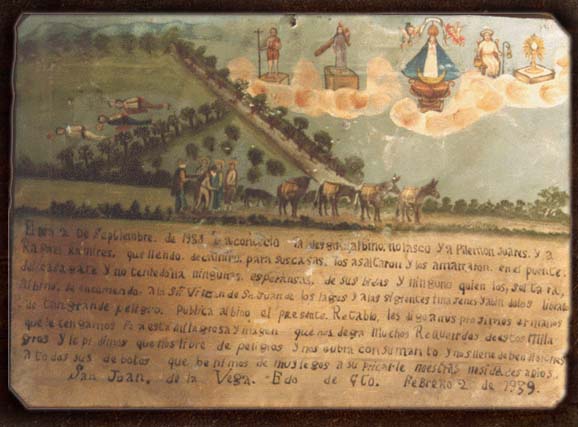 El dia 2 De Septiembre. de 1938 le aconteció la desgracia albino. nolasco y a Filemon Juares. y a
Rafael Ramires, que llendo. decamino, para sus casas, los asaltaron y los amarraron. en el puente
de y no teniedo lla ningunas, esperansas, de sus bidas y ninguno quien los, soltara,
Albino, se encomendo. a la Sra Virgen de Sn Juan de los lagos y alas sigientes Imajenes y abin dolos librado
de tan grande peligro. Publica albino el presente. Retablo, les digo anus prosimos ermanos
que le tengamos Fe a esta milagrosa ymagen que nos degra muchos Recuerdos desstos milla
gros y le pidamos que nos libre de peligros y nos cubra con su manto y nos llene de ben disiones
a todos sus de botos que benimos de mus legos a su
San Juan. de la Vega. Edo de GTO. Febrero 2 de 1939.